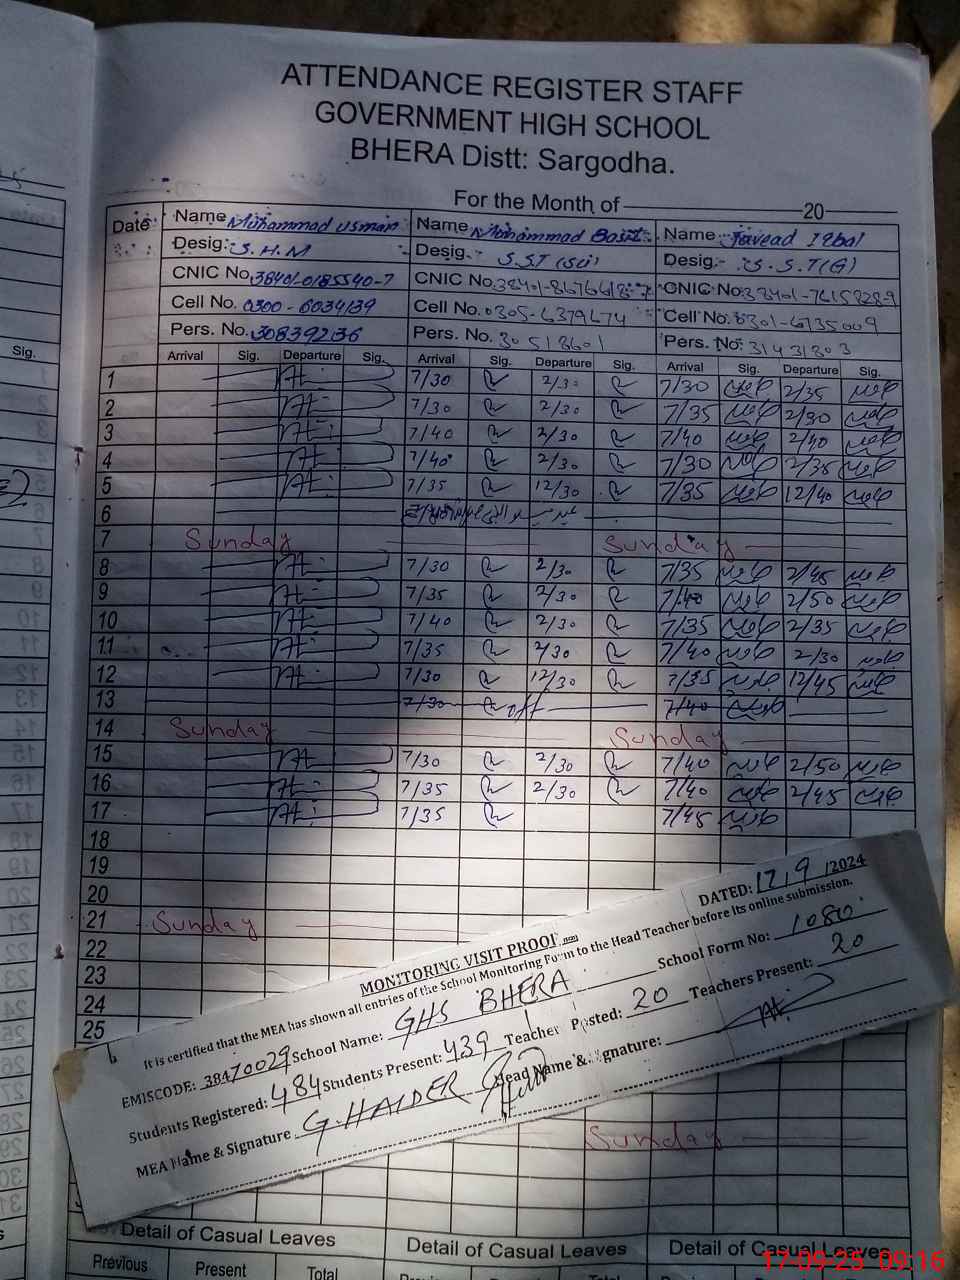 ATTENDANCE REGISTER STAFF
GOVERNMENT HIGH SCHOOL
BHERA Distt: Sargodha.
For the Month of 20
Date Name Muhammad Usman Name Muhammad Basit Name Javead Iqbal
Desig: S.H.M Desig. S.ST (Sci) Desig:- S.S.T(G)
CNIC No. 38401-0185540-7 CNIC No. CNIC No.
Cell No. 0300-6034139 Cell No. 0305-6379674 Cell No. 0301-6735009
Pers. No. 30839236 Pers. No. 30518601 Pers. No: 31431303
Arrival Sig. Departure Sig. Arrival Sig. Departure Sig. Arrival Sig. Departure Sig.
1 7/30 2/30 7/30 2/35
2 7/30 2/30 7/35 2/30
3 7/40 2/30 7/40 2/40
4 7/40 2/30 7/30 2/35
5 7/35 12/30 7/35 12/40
6
7 Sunday Sunday
8 7/30 2/30 7/35 2/45
9 7/35 2/30 7/40 2/50
10 7/40 2/30 7/35 2/35
11 7/35 2/30 7/40 2/30
12 7/30 12/30 7/35 12/45
13 7/30 off 7/40
14 Sunday Sunday
15 7/30 2/30 7/40 2/50
16 7/35 2/30 7/40 2/45
17 7/35 7/45
18
19
20
21 Sunday
22
23
24
25
DATED: 17/9/2024
MONITORING VISIT PROOF
It is certified that the MEA has shown all entries of the School Monitoring Form to the Head Teacher before its online submission.
EMISCODE: 38470029 School Name: GHS BHERA School Form No: 1080
Students Registered: 484 Students Present: 439 Teacher Posted: 20 Teachers Present: 20
MEA Name & Signature G. HAIDER Head Name & Signature:
Sunday
Detail of Casual Leaves Detail of Casual Leaves Detail of Casual Leaves
Previous Present Total
17-09-25 09:16